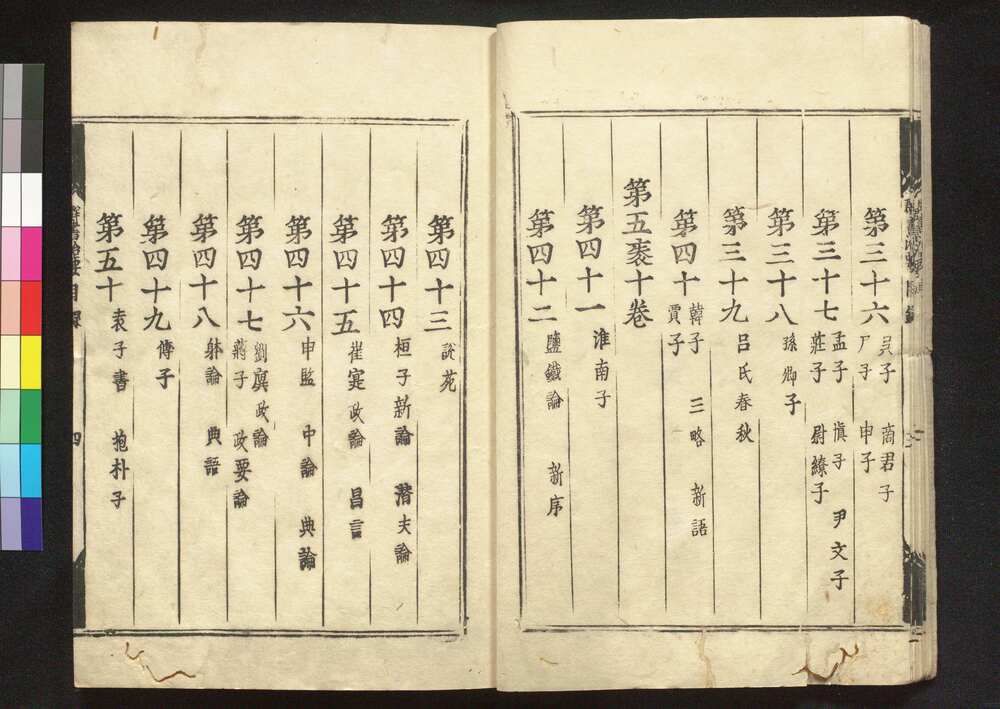 第三十六 吳子 商君子
尸子 申子
第三十七 孟子 愼子 尹文子
莊子 尉繚子
第三十八 孫卿子
第三十九 呂氏春秋
第四十 韓子 三略 新語
賈子
第五袠十卷
第四十一 淮南子
第四十二 鹽鐵論 新序
第四十三 說苑
第四十四 桓子新論 潛夫論
第四十五 崔寔政論 昌言
第四十六 申鑒 中論 典論
第四十七 劉廙政論
蔣子 政要論
第四十八 躰論 典語
第四十九 傅子
第五十 袁子書 抱朴子
群書治要目録 四